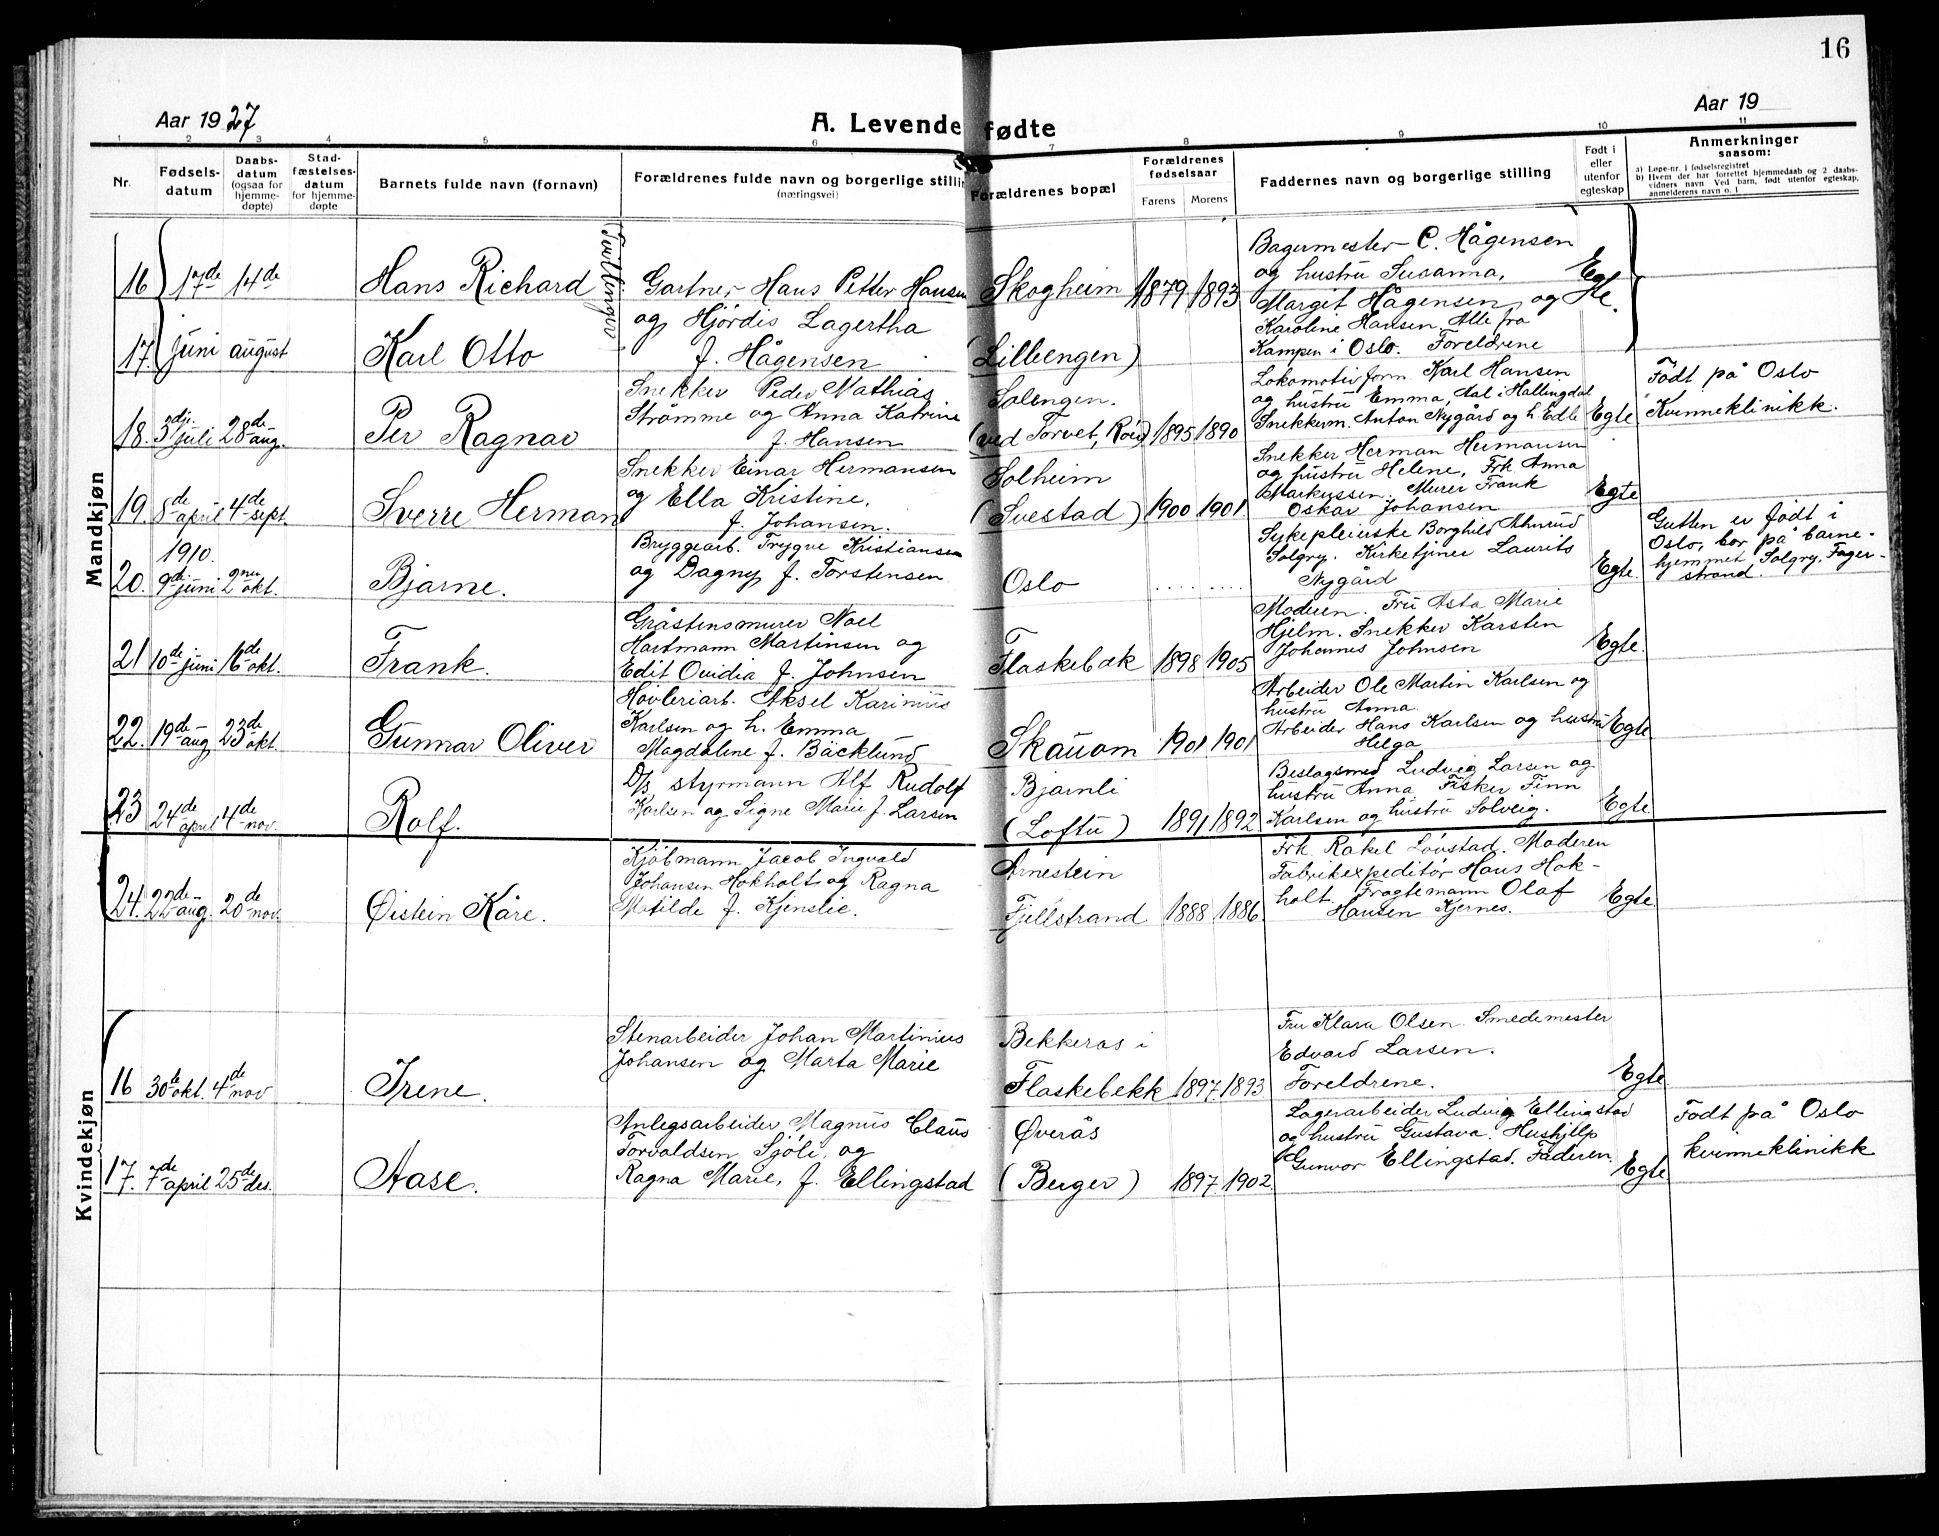 16
Aar 1927
A. Levende fødte
Aar 19
1 2 3 4 5 6 7 8 9 10 11
Nr.
Fødsels-
datum
Daabs-
datum
(ogsaa for
hjemme-
døpte)
Stad-
fæstelses-
datum
for hjemme-
døpte
Barnets fulde navn (fornavn)
Forældrenes fulde navn og borgerlige stilling
(næringsvei)
Forældrenes bopæl
Forældrenes
fødselsaar
Farens Morens
Faddernes navn og borgerlige stilling
Født i
eller
utenfor
egteskap
Anmerkninger
saasom:
a) Løpe-nr. i fødselsregistret
b) Hvem der har forrettet hjemmedaab og 2 daabs-
vidners navn Ved barn, født utenfor egteskap,
anmelderens navn o. l
Mandkjøn
16
17.
17de
juni
14de
august
Hans Richard
Karl Otto
Tvillinger
Gartner Hans Petter Hansen
og Hjördis Lagertha
f. Hågensen
Skogheim
(Lilleengen)
1879 1893
Bagermester C. Hågensen
og hustru Susanna,
Margit Hågensen og
Karoline Hansen. Alle fra
Kampen i Oslo. Foreldrene
Egte
18. 3dje juli 28de aug.
Per Ragnar
Snekker Peder Mathias
Strømme og Anna Katrine
f. Hansen
Solengen.
(ved Torvet, Roer)
1895 1890
Lokomotivform Karl Hansen
og hustru Emma, Aal i Hallingdal
Snekkerm. Anton Nygård og h. Edle
Egte
Født på Oslo
Kvinneklinikk.
19. 8de april 4de sept
Sverre Herman
Snekker Einar Hermansen
og Ella Kristine,
f. Johansen.
Solheim
(Svestad)
1900 1901
Snekker Herman Hermansen
og hustru Helene, Frk Anna
Markussen. Murer Frank
Oskar Johansen
Egte
1910.
20. 9de juni 2nen okt.
Bjarne.
Bryggearb. Trygve Kristiansen
og Dagny f. Torstensen
Oslo
Sykepleierske Borghild
Solgry. Kirketjener Laurits
Nygård
Egte.
Gutten er født i
Oslo, bor på barne-
hjemmet, Solgry, Fager-
strand.
21 10de juni 16de okt.
Frank.
Gråstensmurer Noel
Hartmann Martinsen og
Edit Ovidia f. Johnsen
Flaskebæk
1898 1905
Moderen. Fru Asta Marie
Hjelm. Snekker Karsten
Johannes Johnsen
Egte.
22. 19de aug 23de okt.
Gunnar Oliver
Høvleriarb. Aksel Karinius
Karlsen og h. Emma
Magdaline f. Bäcklund
Skauom
1901 1901
Arbeider Ole Martin Karlsen og
hustru Anna
Arbeider Hans Karlsen og hustru
Helga
Egte
23 24de april 4de nov.
Rolf.
D/s styrmann Alf Rudolf
Karlsen og Signe Marie f. Larsen
Bjørnli
(Loftu)
1891 1892
Beslagsmed Ludvig Larsen og
hustru Anna Fisker Finn
Karlsen og hustru Solveig.
Egte.
24. 22de aug. 20de nov.
Øistein Kåre.
Kjøbmann Jacob Ingvald
Johansen Hokholt og Ragna
Matilde f. Kjenslie.
Arnestein
Fjellstrand
1888 1886.
Frk Rakel Løvstad. Moderen
Fabrikexpeditør Hans Hok-
holt. Fragtemann Olaf
Hansen Kjernes.
Egte.
Kvindekjøn
16 30te okt. 4de nov
Irene.
Stenarbeider Johan Martinius
Johansen og Marta Marie
Bekkeros i
Flaskebekk
1897 1893
Fru Klara Olsen. Smedemester
Edvard Larsen.
Foreldrene.
Egte
17. 7de april 25de des.
Aase.
Anlegsarbeider Magnus Claus
Torvaldsen Sjöli, og
Ragna Marie, f. Ellingstad
Øverås
(Berger)
1897 1902.
Lagerarbeider Ludvig Ellingstad
og hustru Gustava. Hushjelp
Gunvor Ellingstad. Faderen.
Egte.
Født på Oslo
kvinneklinikk